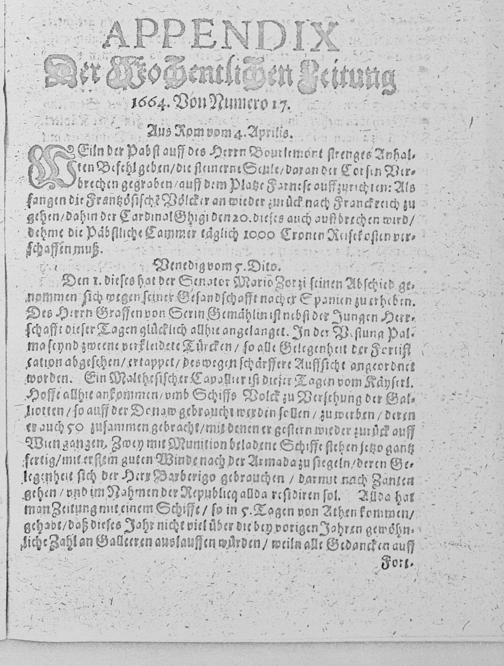 APPENDIX
Der Wochentlichen Zeitung
1664. Von Numero 17.
Aus Rom vom 4. Aprilis.
WEiln der Pabst auff des Herrn Bourlemont strenges Anhal-
ten Befehl geben / die steinerne Seule / daran der Corsen Ver-
brechen gegraben / auff dem Platze Farnese auffzurichten: Als
fangen die Frantzösische Völcker an wieder zurück nach Franckreich zu
gehen / dahin der Cardinal Ghigi den 20. dieses auch auffbrechen wird /
dehme die Päbstliche Cammer täglich 1000 Cronen Reisekosten ver-
schaffen muß.
Venedig vom 5. Dito.
Den 1. dieses hat der Senator Mario Zorzi seinen Abschied ge-
nommen sich wegen seiner Gesandschafft nacher Spanien zu erheben.
Des Herrn Graffen von Serin Gemählin ist nebst der Jungen Herr-
schafft dieser Tagen glücklich allhie angelanget. In der Vestung Pal-
ma seynd zweene verkleidete Türcken / so alle Gelegenheit der Fortifi-
cation abgesehen / ertappet / deswegen schärffere Auffsicht angeordnet
worden. Ein Malthesischer Cavallier ist dieser Tagen vom Käyserl.
Hoffe allhie ankommen / umb Schiffs Volck zu Versehung der Gal-
liotten / so auff der Donaw gebraucht werden sollen / zu werben / deren
er auch 50 zusammen gebracht / mit denen er gestern wieder zurück auff
Wien gangen. Zwey mit Munition beladene Schiffe stehen jetzo gantz
fertig / mit erstem guten Winde nach der Armada zu siegeln / deren Ge-
legenheit sich der Herr Barberigo gebrauchen / darmit nach Zanten
gehen / vnd im Nahmen der Republicq allda residiren sol. Allda hat
man Zeitung mit einem Schiffe / so in 5. Tagen von Athen kommen /
gehabt / daß dieses Jahr nicht viel über die bey vorigen Jahren gewöhn-
liche Zahl an Galleeren auslauffen würden / weiln alle Gedancken auff
Fort-